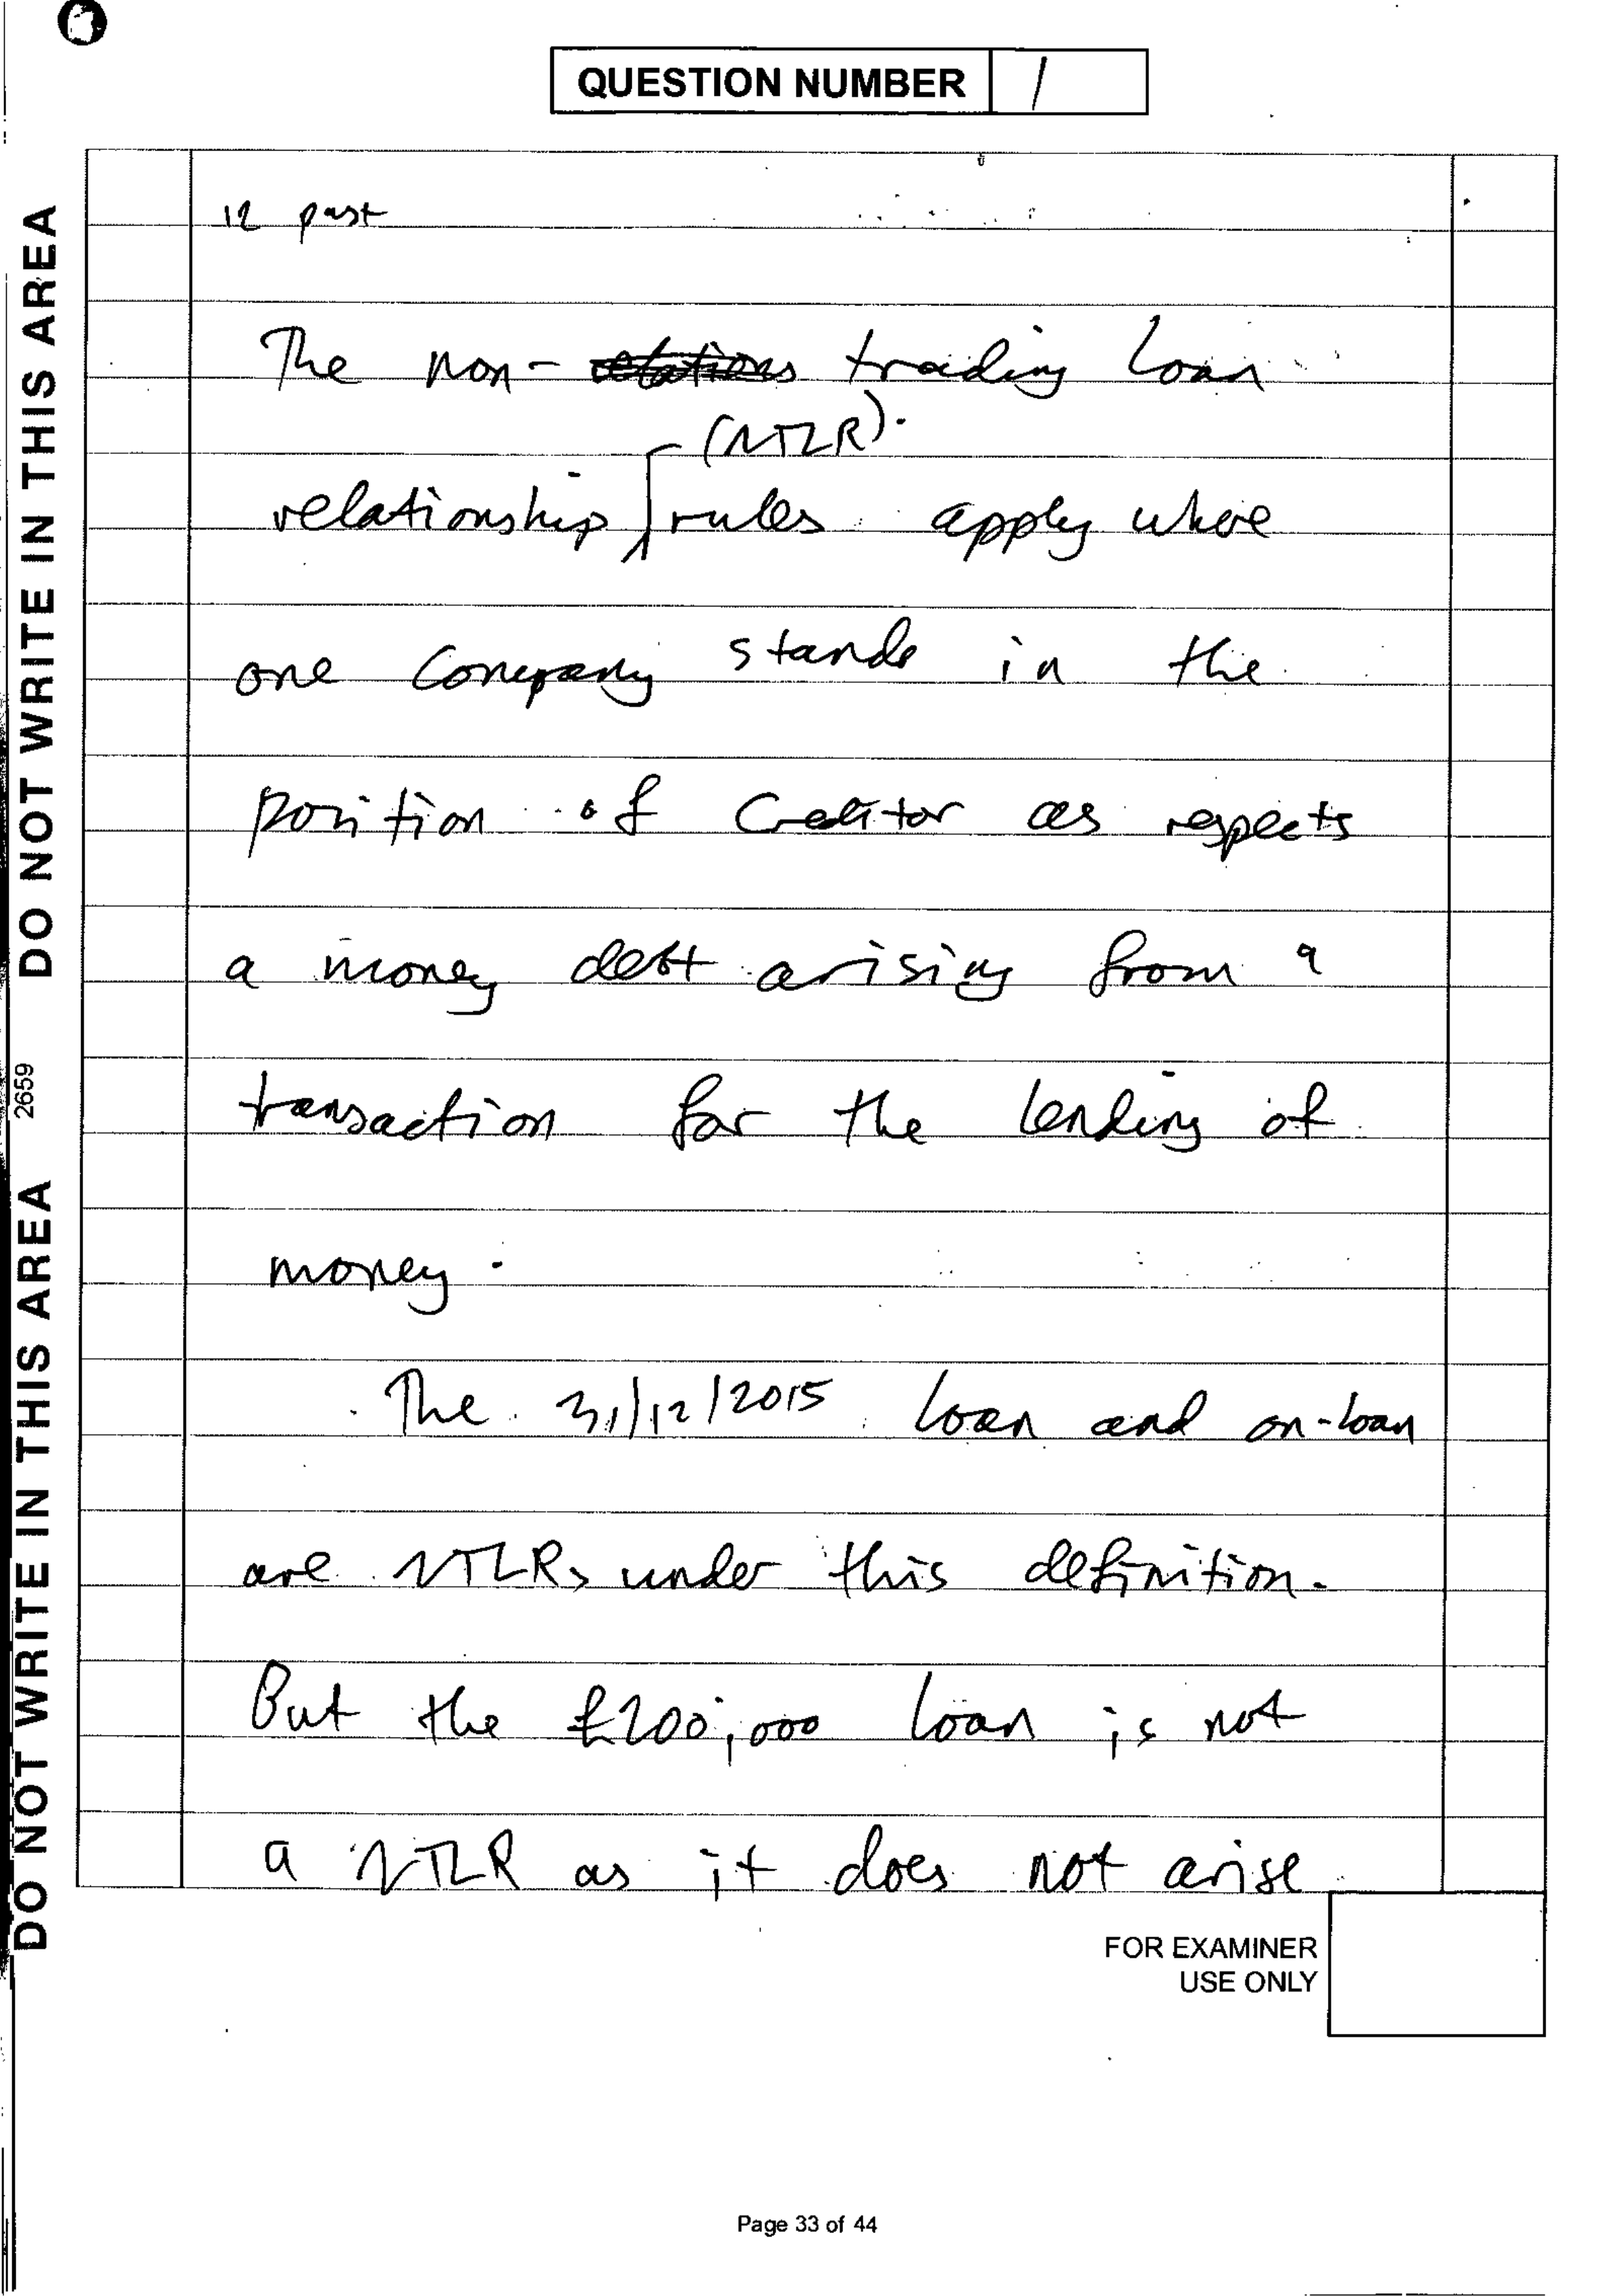 QUESTION NUMBER 1
12 past
The non- relations trading loan
(NTLR).
relationship rules apply where
one company stands in the
position of creditor as respects
a money debt arising from a
transaction for the lending of
money.
The 31/12/2015 loan and on-loan
are NTLRs under this definition.
But the £200,000 loan is not
a NTLR as it does not arise
FOR EXAMINER
USE ONLY
Page 33 of 44
DO NOT WRITE IN THIS AREA
2659
DO NOT WRITE IN THIS AREA